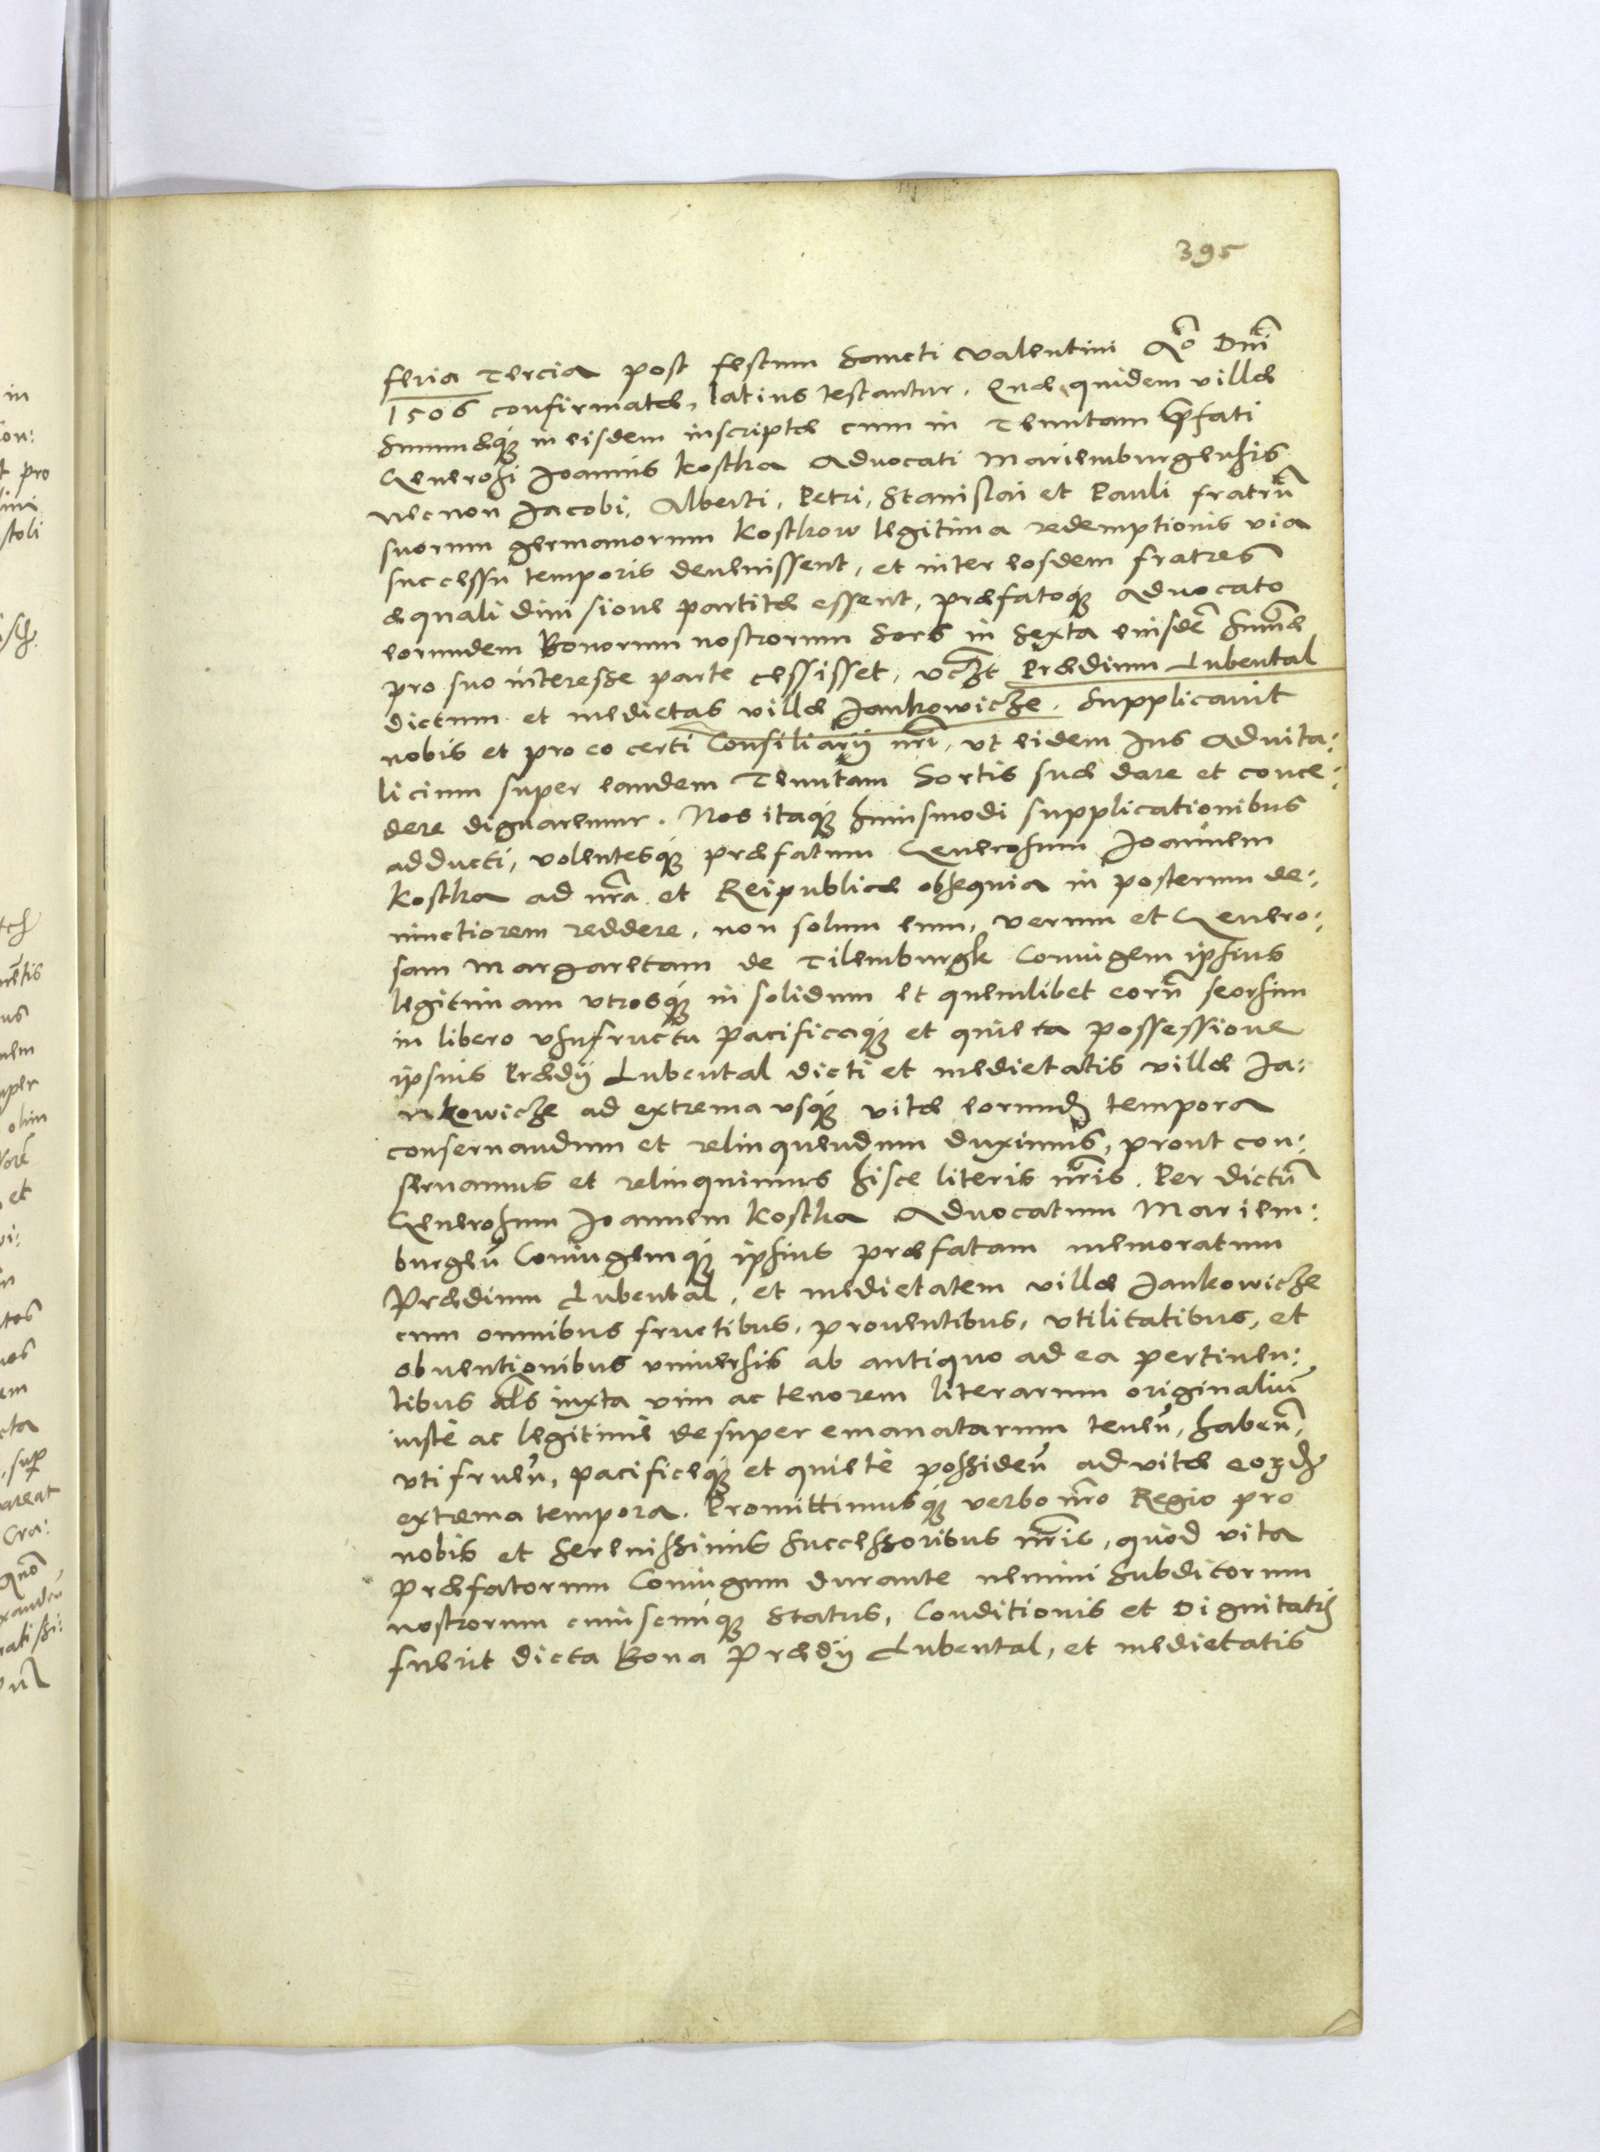 395
feria Tercia post festum Sancti Valentini Ao Dni
1506 confirmatæ, latius testantur. Quæ quidem villæ
Summæq́ in eisdem inscriptæ cum in Tenutam p̄fati
Generosi Joannis Kostka Advocati Mariemburgensis
necnon Jacobi, Alberti, Petri, Stanislai et Pauli fratrū
suorum germanorum Kostkow legitima redemptionis via
successu temporis devenissent, et inter eosdem fratres
æquali divisione partitæ essent, præfatoq́ Advocato
eorundem Bonorum nostrorum Sors in Sexta eiusdē Sum̄æ
pro suo interesse parte cessisset, vczt Prædium Lubental
dictum et medietas villæ Jankowicze. Supplicavit
nobis et pro eo certi Consiliarij nr̄i, ut eidem Jus Advita:
licium super eandem Tenutam Sortis suæ dare et conce:
dere dignaremur. Nos itaq́ huiusmodi supplicationibus
adducti, volentesq́ præfatum Generosum Joannem
Kostka ad nr̄a et Reipublicæ obsequia in posterum de:
vinctiorem reddere, non solum eum, verum et Genero:
sam Margaretam de Tilemburgk Coniugem ipsius
legitimam utrosq́ in solidum et quemlibet eorū seorsim
in libero usufructu pacificaq́ et quieta possessione
ipsius Prædij Lubental dicti et medietatis villæ Ja:
nkowicze ad extrema usq́ vitæ eorund tempora
conservandum et relinquendum duximus, prout con:
servamus et relinquimus hisce literis nr̄is. Per dictū
Generosum Joannem Kostka Advocatum Mariem:
burgeñ Coniugemq́ ipsius præfatam memoratum
Prædium Lubental, et medietatem villæ Jankowicze
cum omnibus fructibus, proventibus, utilitatibus, et
obventionibus universis ab antiquo ad ea pertinen:
tibus iuxta vim ac tenorem literarum originaliū
iustè ac legitimè desuper emanatarum teneñ, habeñ,
utifrueñ, pacificeq́ et quietè possideñ ad vitæ eorzd
extrema tempora. Promittimusq́ verbo nr̄o Regio pro
nobis et Serenissimis Successoribus nr̄is, quòd vita
præfatorum Coniugum durante nemini Subditorum
nostrorum cuiuscunq́ Status, Conditionis et Dignitatis
fuerit dicta Bona Prædij Lubental, et medietatis